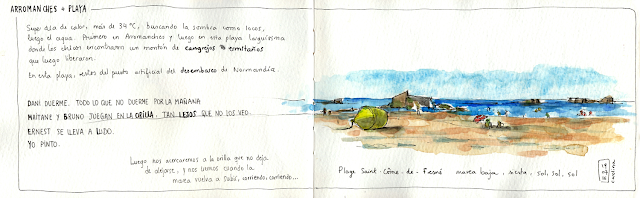 ARROMANCHES + PLAYA
Super día de calor, más de 34 ºC, buscando la sombra como locos,
luego el agua. Primero en Arromanches y luego en esta playa larguísima
donde los chicos encontraron un montón de cangrejos ermitaños
que luego liberaron.
En esta playa, restos del puerto artificial del desembarco de Normandía.
DANI DUERME. TODO LO QUE NO DUERME POR LA MAÑANA
MAITANE Y BRUNO JUEGAN EN LA ORILLA, TAN LEJOS QUE NO LOS VEO.
ERNEST SE LLEVA A LUDO.
YO PINTO.
Luego nos acercaremos a la orilla que no deja
de alejarse, y nos iremos cuando la
marea vuelva a subir, corriendo, corriendo...
Playa Saint-Côme-de-Fresné marea baja, siesta, sol, sol, sol